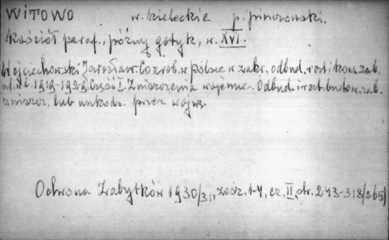 WITOWO w. kieleckie p. pinczowski.
Kościół paraf., późny gotyk, w. XVI.
Wojciechowski Jarosław. Co zrob. w Polsce w zakr. odbud. rest. i kons. zab.
1919-1929. Część I. Zniszczenia wojenne. Odbud. i rest. budow. zab.
zniszcz. lub uszkodz. przez wojnę.
Ochrona Zabytków 1930/31, zesz. 1-4, cz. II, str. 273-318 (365)